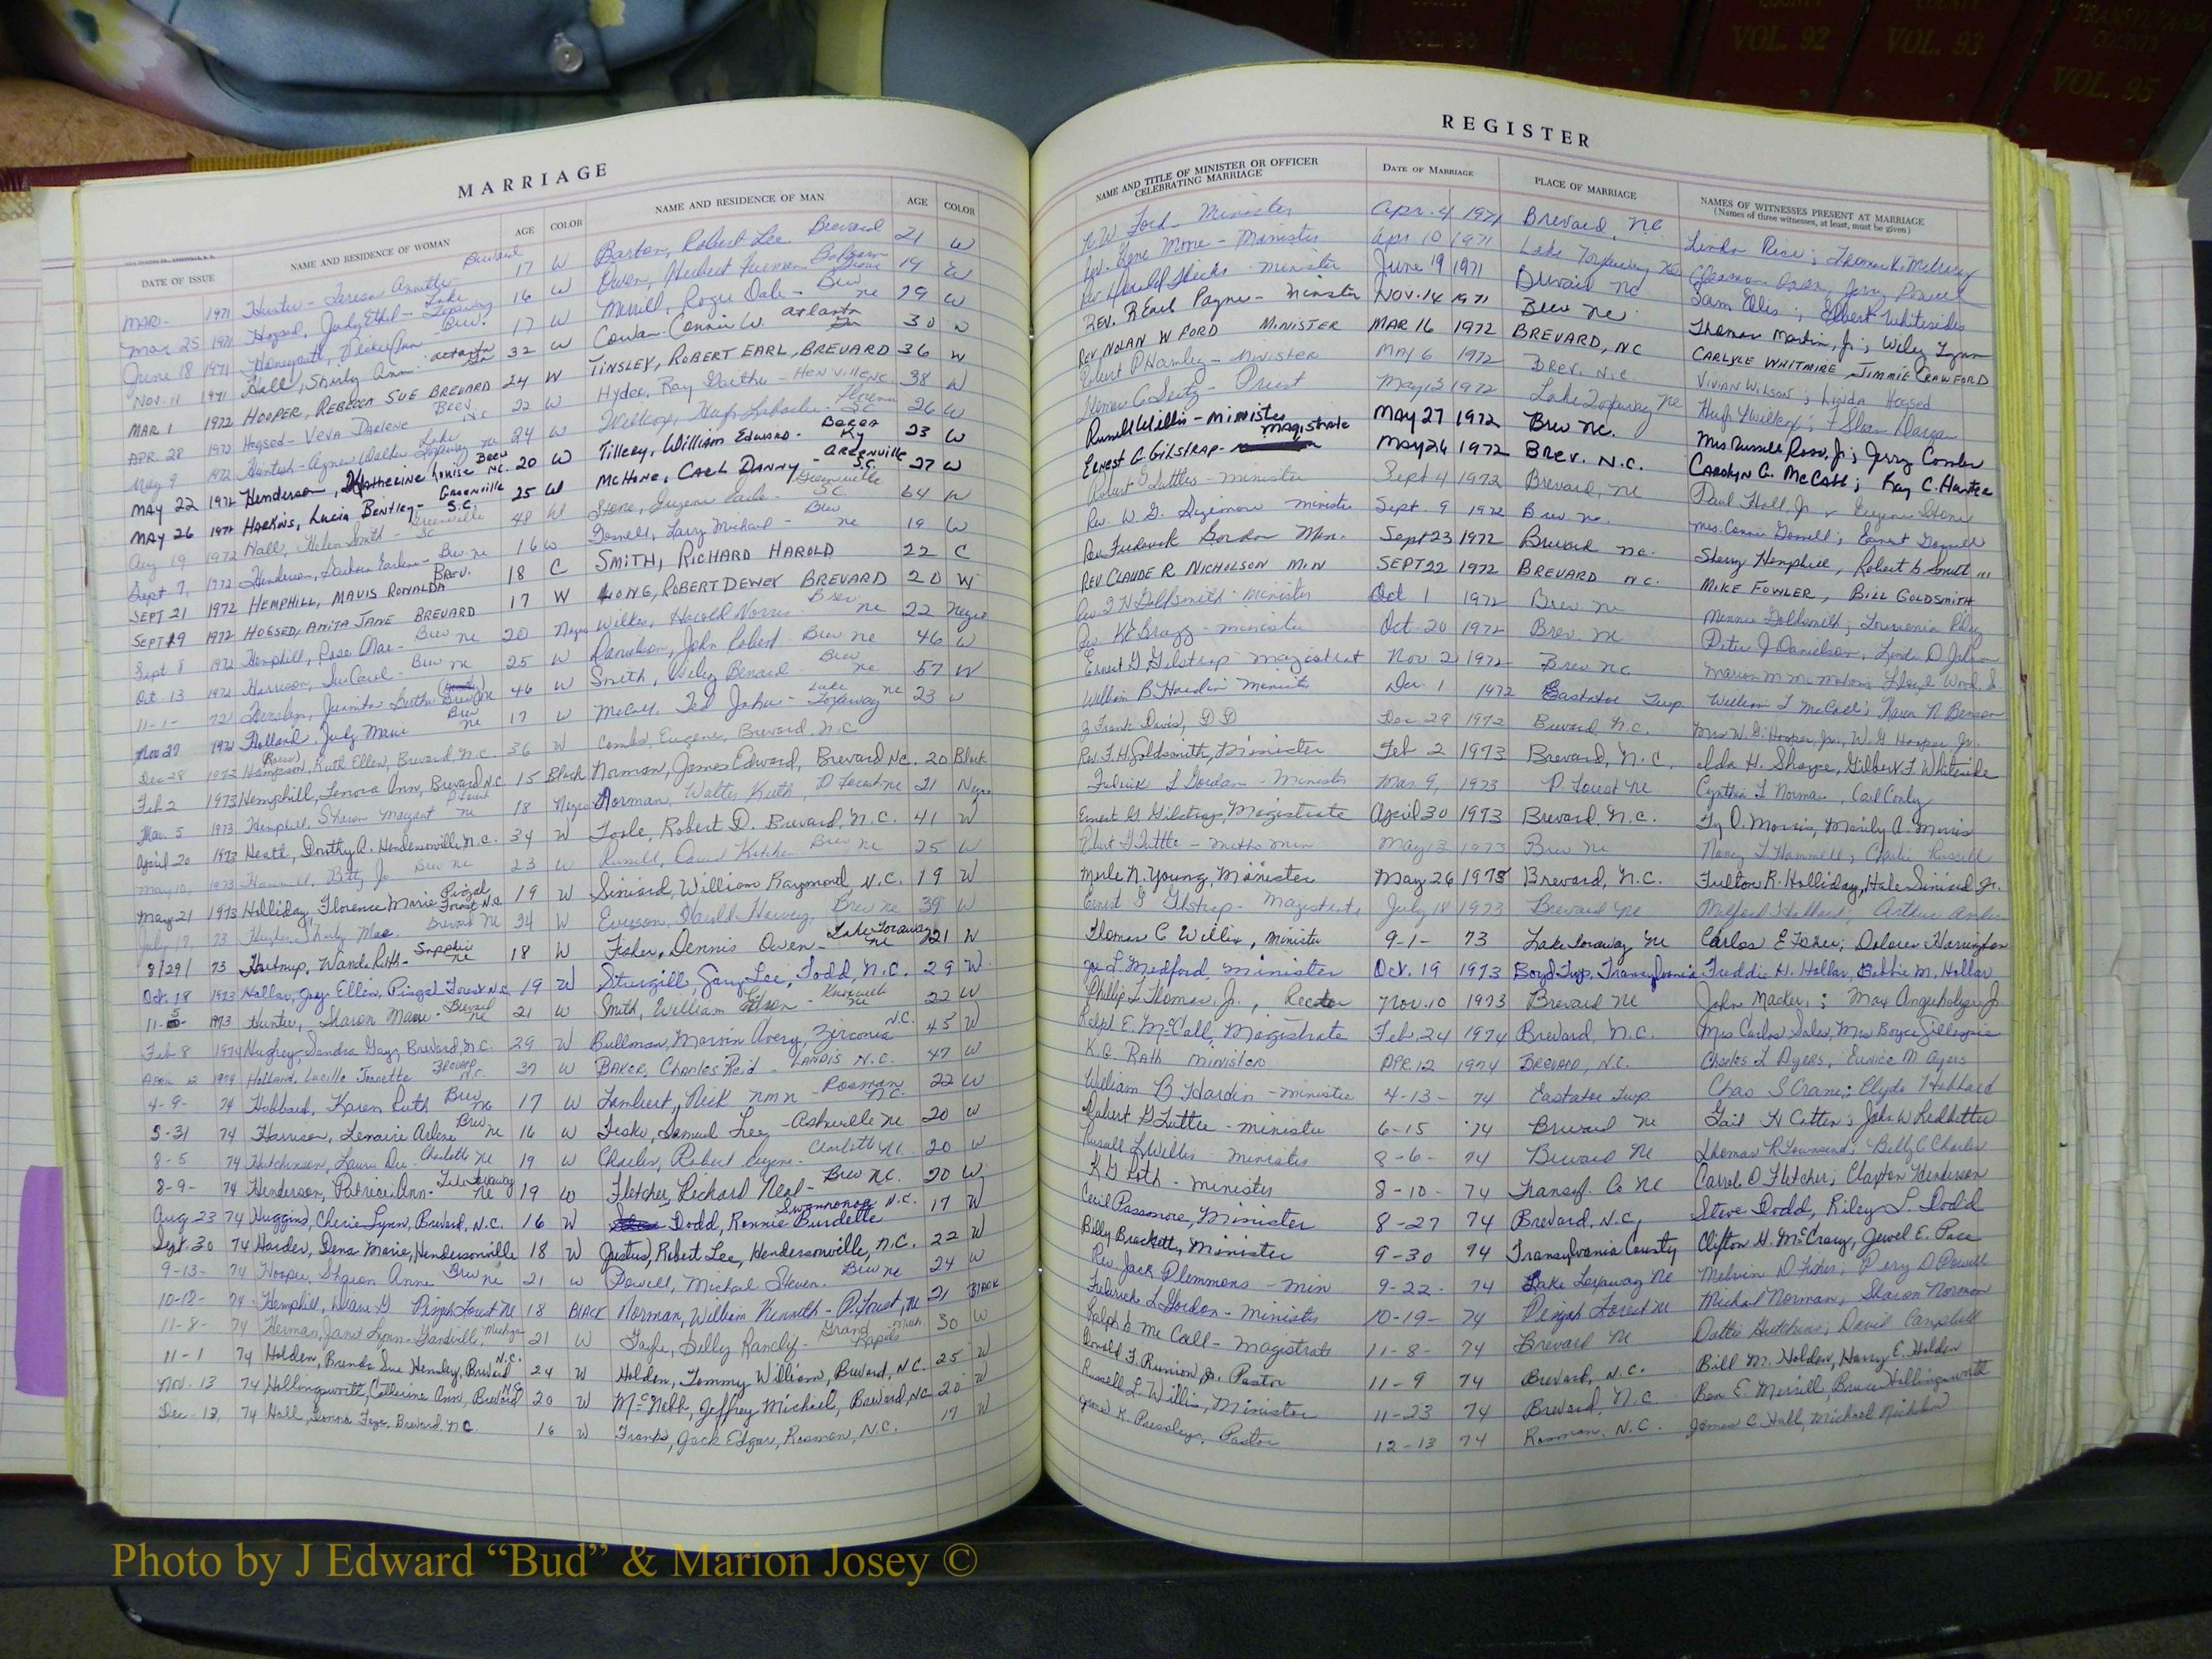 COUNTY VOL. 90
COUNTY VOL. 91
COUNTY VOL. 92
COUNTY VOL. 93
TRANSYLVANIA COUNTY VOL. 95
MARRIAGE
REGISTER
DATE OF ISSUE NAME AND RESIDENCE OF WOMAN AGE COLOR NAME AND RESIDENCE OF MAN AGE COLOR
NAME AND TITLE OF MINISTER OR OFFICER CELEBRATING MARRIAGE DATE OF MARRIAGE PLACE OF MARRIAGE NAMES OF WITNESSES PRESENT AT MARRIAGE
(Names of three witnesses, at least, must be given)
MAR. 1971 Hunter - Teresa Annette Brevard 17 W Barton, Robert Lee Brevard 21 W Ford Minister Apr. 4 1971 Brevard, NC Linda Rice;
Mar 25 1971 Hogsed, Judy Ethel - Lake Toxaway 16 W Owen, Herbert 19 W Gene More - Minister Apr. 10 1971 Lake Toxaway NC
June 18 1971 17 W Merrill, Roger Dale - Brev NC 29 W Minister June 19 1971 Brevard NC Sam Ellis; Elbert Whitesides
NOV. 11 1971 Hall, Shirly Ann Atlanta Ga 32 W Cowan - Connie W. Atlanta Ga 30 W REV. R Earl Payne - Minister NOV. 14 1971 Brev NC Thomas Martin, Jr; Wiley Lynn
MAR 1 1972 HOOPER, REBECCA SUE BREVARD 24 W TINSLEY, ROBERT EARL, BREVARD 36 W REV NOLAN W FORD MINISTER MAR 16 1972 BREVARD, NC CARLYLE WHITMIRE, JIMMIE CRAWFORD
APR. 28 1972 Hogsed - Veva Darlene Brev. N.C 22 W Hyder, Ray - Hen'ville NC. 38 W Robert P Hamley - Minister MAY 6 1972 Brev. N.C. Vivian Wilson; Linda Hogsed
May 9 1972 Lake Toxaway NC 24 W Florence SC 26 W Priest May 13 1972 Lake Toxaway NC
MAY 22 1972 Henderson, Katherine Louise Brev NC. 20 W Tillery, William Edward - Ky 23 W Russell Willis - Minister MAY 27 1972 Brev NC. Mrs Russell Ross, Jr; Jerry Combs
MAY 26 1972 HARKINS, Lucia Bentley - Greenville S.C. 25 W McHONE, CARL DANNY - GREENVILLE S.C. 27 W Ernest G Gilstrap - Magistrate MAY 26 1972 BREV. N.C. CAROLYN G. McCALL; Kay C. Hunter
Aug 19 1972 Hall, Helen Smith - Greenville SC 48 W Stone, Eugene Earle - Greenville S.C. 64 W Robert G Tuttle - minister Sept 4 1972 Brevard, NC Paul Hall, Jr & Eugene Stone
Sept 7, 1972 Henderson, Earlene - Brev NC 16 W Gosnell, Larry Michael - Brev NC 19 W Rev. W. G. minister Sept. 9 1972 Brev NC. Mrs. Connie Gosnell; Earnest Gosnell
SEPT 21 1972 HEMPHILL, MAVIS RONALDA BREV. 18 C SMITH, RICHARD HAROLD 22 C Rev Frederick Gordon Min. Sept 23 1972 Brevard NC. Sherry Hemphill, Robert Smith
SEPT 19 1972 HOGSED, ANITA JANE BREVARD 17 W LONG, ROBERT DEWEY BREVARD 20 W REV CLAUDE R NICHOLSON MIN SEPT 22 1972 BREVARD N.C. MIKE FOWLER, BILL GOLDSMITH
Sept 8 1972 Hemphill, Rose Mae - Brev NC 20 Negro Wilkes, Harold Norris - Brev NC 22 Negro Goldsmith - Minister Oct 1 1972 Brev NC Minnie Goldsmith; Louvenia
Oct 13 1972 Harrison, Sue Carol - Brev NC 25 W Danielson, John Robert Brev NC 46 W Bragg - minister Oct. 20 1972 Brev. NC Peter J Danielson, Linda D
11-1- 72 Juanita Brev NC 46 W Smith, Wiley Benard - Brev NC 57 W Ernest G Gilstrap magistrate Nov 2 1972 Brev NC
Nov 27 1972 Holland, Judy Marie Brev NC 17 W McCall, Ted John - Lake Toxaway NC 23 W William B Hardin Minister Dec. 1 1972 Eastatoe Twp William L McCall; Karen N Benson
Dec 28 1972 Hampson, Ruth Ellen, Brevard, N.C. 36 W Combs, Eugene, Brevard, N.C. J Frank Davis, DD Dec 29 1972 Brevard N.C. Mrs W. G. Hooper Jr., W. G Hooper, Jr.
Feb 2 1973 Hemphill, Lenora Ann, Brevard N.C. 15 Black Norman, James Edward, Brevard N.C. 20 Black Rev. F. H. Goldsmith, Minister Feb 2 1973 Brevard, N.C. Ida H. Sharpe, Gilbert F. Whiteside
Mar. 5 1973 Hemphill, Sharon Margaret P. Forest NC 18 Negro Norman, Walter Keith, P. Forest NC 21 Negro Fredrick L Gordan - Minister Mar. 9, 1973 P. Forest NC Cynthia L Norman, Carl Conley
April 20 1973 Heath, Dorothy A. Hendersonville, N.C. 34 W Toole, Robert D. Brevard, N.C. 41 W Ernest G Gilstrap, Magistrate April 30 1973 Brevard, N.C. Ty O. Morris, Marily A. Morris
May 10, 1973 Hammett, Betty Jo Brev NC 23 W Russell, David Brev NC 25 W Robert G Tuttle - Meth. Min May 13 1973 Brev NC Nancy L Hammett, Charlie Russell
May 21 1973 Holliday, Florence Marie Pisgah Forest N.C. 19 W Siniard, William Raymond, N.C. 19 W Merle N. Young, Minister May 26 1973 Brevard, N.C. Fulton R. Holliday, Hale Siniard Jr.
July 17, 73 Hughes, Shirly Mae Brevard NC 34 W Everson, Harold Harvey, Brev NC 39 W Ernest G Gilstrap - Magistrate July 18 1973 Brevard NC
8/29/ 73 Wanda Ruth - Sapphire NC 18 W Fisher, Dennis Owen - Lake Toxaway NC 21 W Thomas C Willis, Minister 9-1- 73 Lake Toxaway NC Carlos E Fisher; Dolores Harrington
Oct. 18 1973 Hollar, Joy Ellen, Pisgah Forest N.C. 19 W Sturgill, Gary Lee, Todd, N.C. 29 W Joe L. Medford, Minister Oct. 19 1973 Boyd Twp. Transylvania Freddie H. Hollar, Bobbie M. Hollar
11-5- 1973 Hunter, Sharon Marie - Brevard NC 21 W Smith, William - 22 W Phillip L Thomas, Jr., Rector Nov. 10 1973 Brevard NC
Feb 8 1974 Hughey, Sandra Gayz Brevard, N.C. 29 W Bullman, Marvin Avery, Zirconia N.C. 45 W Ralph E. McCall, Magistrate Feb 24 1974 Brevard, N.C. Mrs Carlos Sales, Mrs Boyce Gillespie
April 2 1974 Holland, Lucille Brevard N.C. 37 W BAKER, Charles Reid - LANDIS N.C. 47 W K.G. Rath minister APR. 12 1974 BREVARD, N.C. Charles L Ayers, Eunice M Ayers
4-9- 74 Hubbard, Karen Ruth Brev NC 17 W Lambert, Nick nmn - Rosman N.C. 22 W William B Hardin - minister 4-13- 74 Eastatoe Twp Chas S Crane; Clyde Hubbard
5-31 74 Harrison, Lenaire Arlene Brev NC 16 W Fesko, Samuel Lee - Asheville NC 20 W Robert G Tuttle - minister 6-15 '74 Brevard NC Gail H Cotten; John W Ledbetter
8-5 74 Hutchinson, Laura Dee Charlotte NC 19 W Charles, Robert Eugene - Charlotte NC 20 W Russell L Willis - minister 8-6- 74 Brevard NC Thomas R Townsend; Betty C Charles
8-9- 74 Henderson, Patricia Ann - Lake Toxaway NC 19 W Fletcher, Richard Neal - Brev NC. 20 W K G Rath - minister 8-10- 74 Transy. Co NC Carrol D Fletcher; Clayton Henderson
Aug 23 74 Huggins, Cherie Lynn, Brevard, N.C. 16 W Dodd, Ronnie Burdette Swannanoa N.C. 17 W Cecil Passmore, Minister 8-27 74 Brevard, N.C. Steve Dodd, Riley L. Dodd
Sept. 30 74 Harder, Dena Marie, Hendersonville 18 W Justus, Robert Lee, Hendersonville, N.C. 22 W Billy Brackett, Minister 9-30 74 Transylvania County Clifton H. McCrary, Jewel E. Pace
9-13- 74 Hooper, Sharon Anne Brev NC 21 W Powell, Michael Steven. Brev NC 24 W Rev Jack Plemmons - min 9-22- 74 Lake Toxaway NC Melvin D Fisher; Perry D Powell
10-12- 74 Hemphill, Diane G Pisgah Forest NC 18 BLACK Norman, William Kenneth - P. Forest, NC 21 BLACK Frederick L Gordon - Minister 10-19- 74 Pisgah Forest NC Michal Norman; Sharon Norman
11-8- 74 Herman, Jane Lynn - Michigan 21 W Randy - Grand Rapids Mich. 30 W Ralph E McCall - Magistrate 11-8- 74 Brevard NC Dottie Hutchins; David Campbell
11-1 74 Holden, Brenda Sue Hensley, Brevard N.C. 24 W Holden, Tommy William, Brevard, N.C. 25 W Donald F. Runion Jr. Pastor 11-9 74 Brevard, N.C. Bill M. Holden, Harry E. Holden
Nov. 13 74 Hollingsworth, Catherine Ann, Brevard N.C. 20 W McNabb, Jeffrey Michael, Brevard, N.C. 20 W Russell L. Willis, Minister 11-23 74 Brevard, N.C. Ben E. Merrill, Bruce Hollingsworth
Dec. 13, 74 Hall, Donna Faye, Brevard N.C. 16 W Franks, Jack Edgar, Rosman, N.C. 17 W James K. Pressley, Pastor 12-13 74 Rosman, N.C. James C. Hall, Michael Nicholson
Photo by J Edward “Bud” & Marion Josey ©